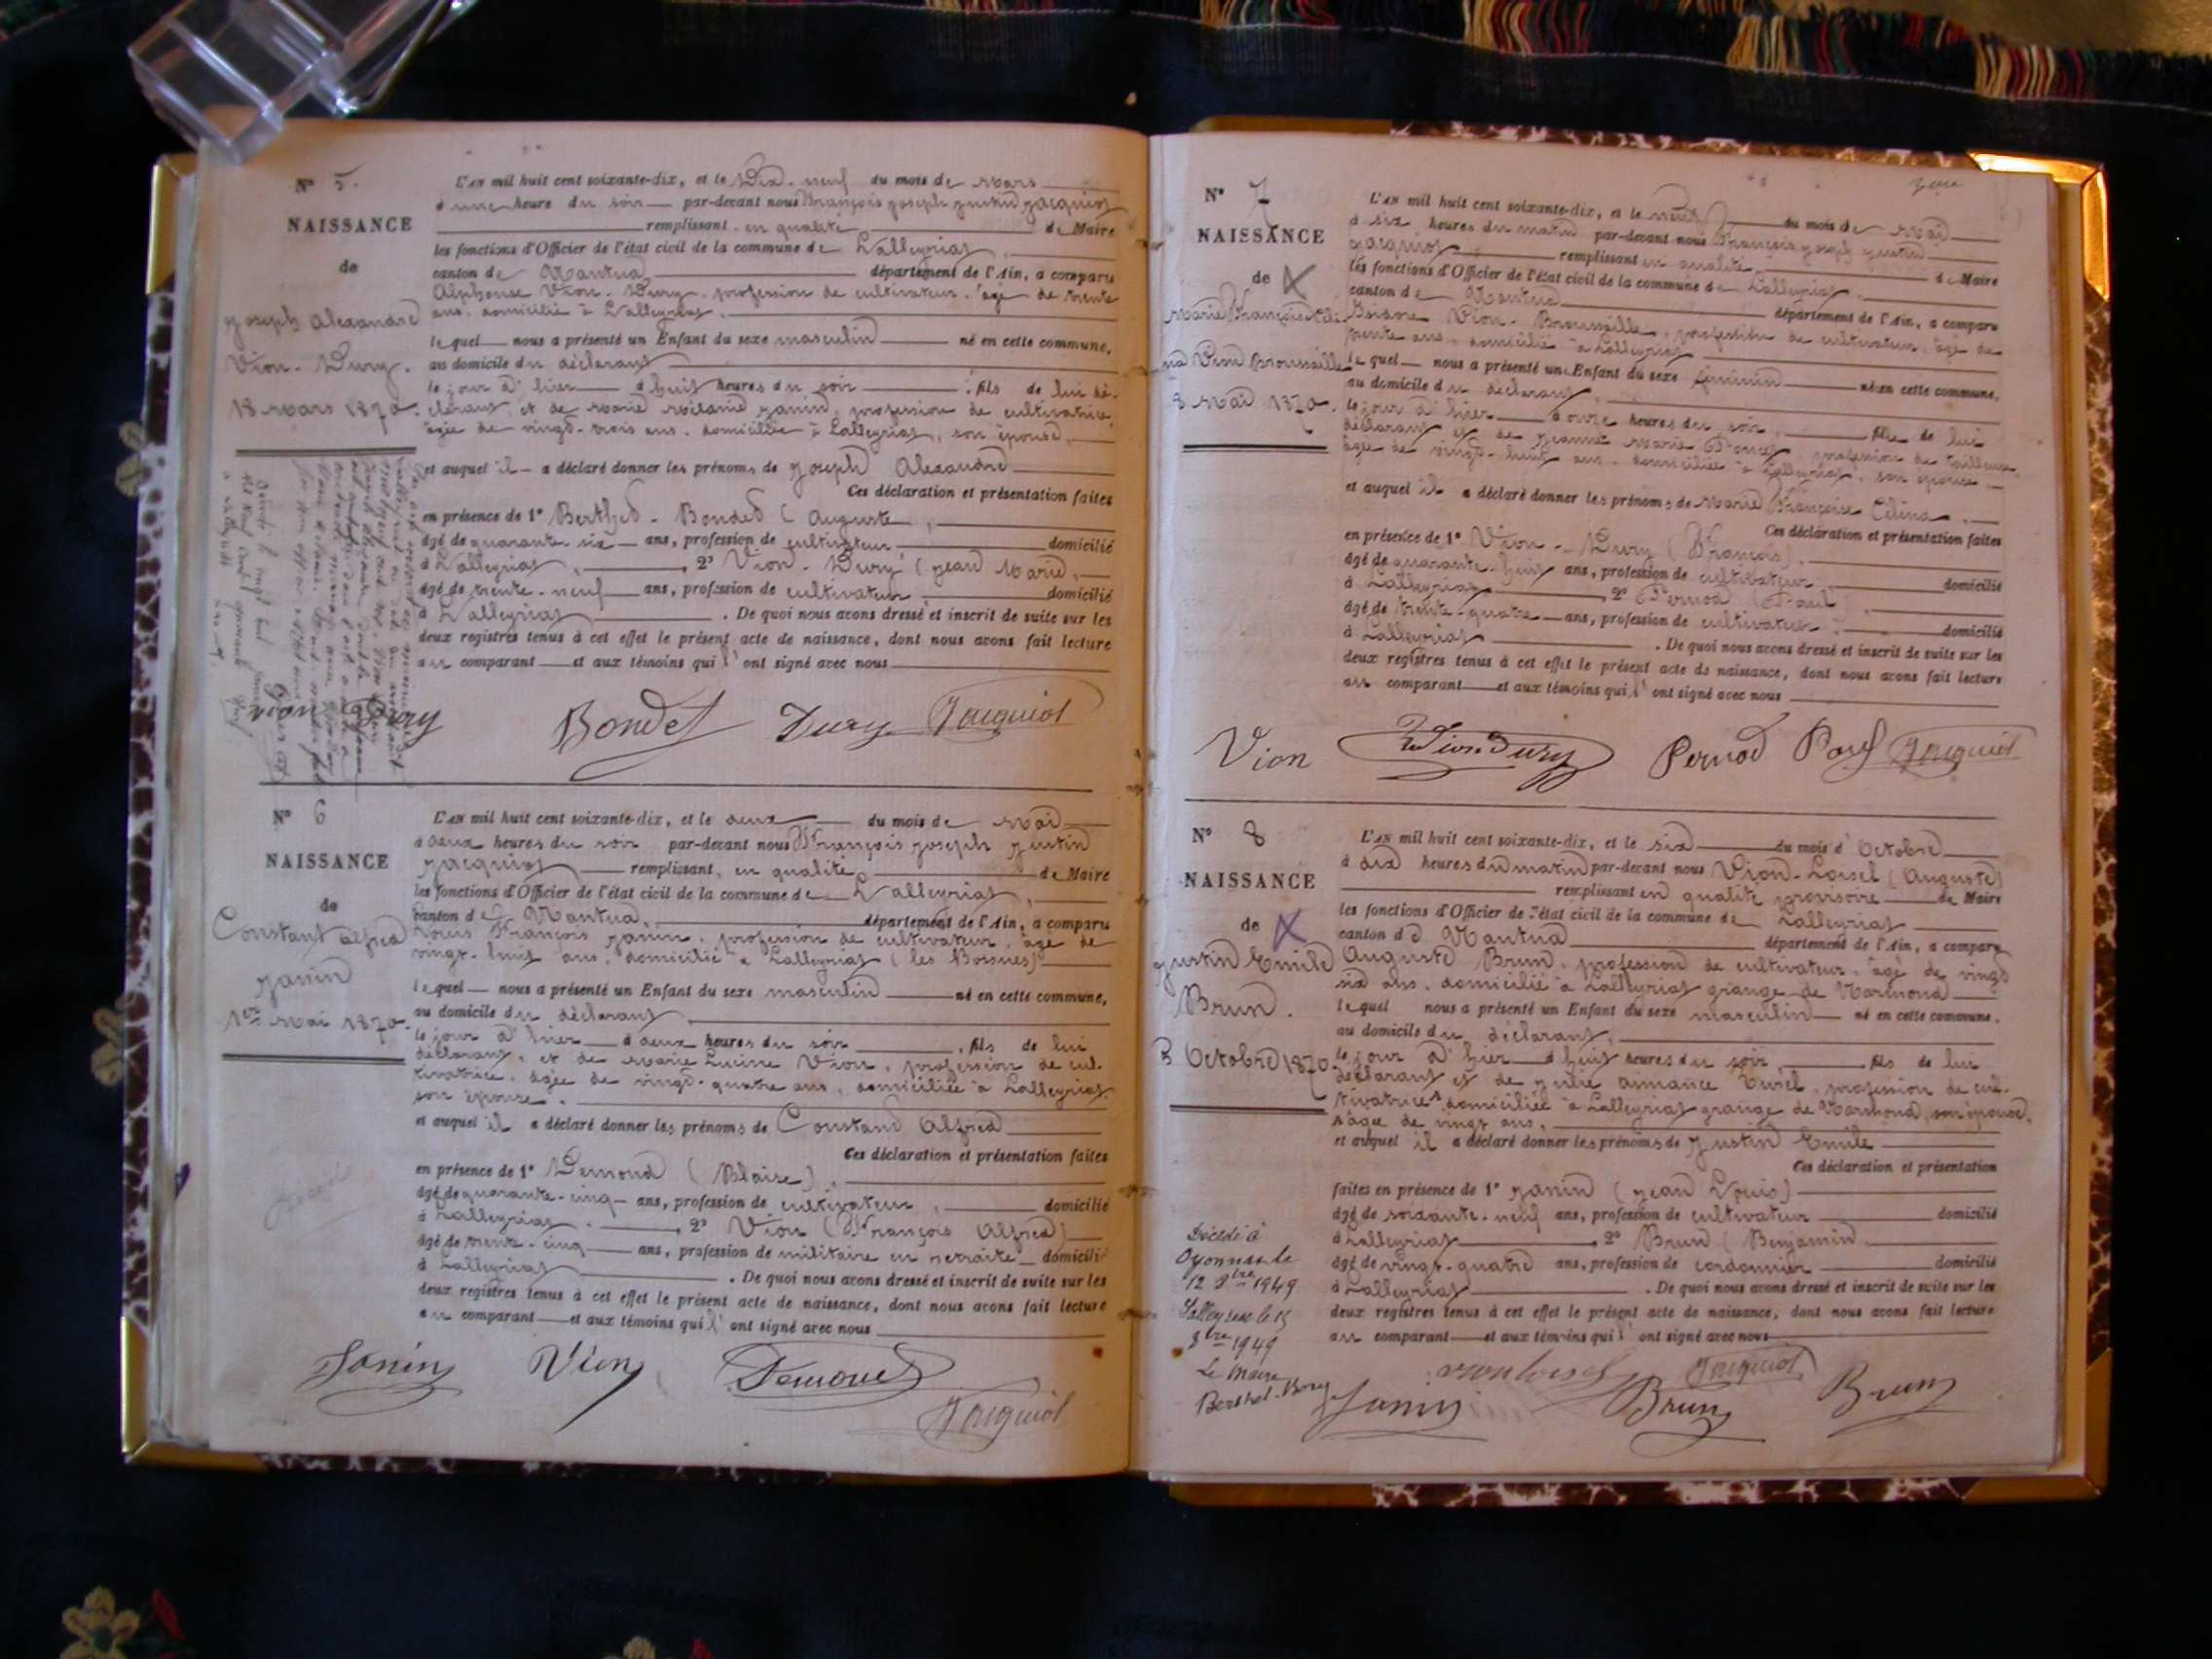 N° 5.
NAISSANCE
de
Joseph Alexandre
Vion-Dury.
18 Mars 1870.
L'AN mil huit cent soixante-dix, et le Dix-neuf du mois de Mars
à une heure du soir par-devant nous François Joseph Justin Jacquiot
remplissant en qualité de Maire
les fonctions d'Officier de l'état civil de la commune de Lalleyriat,
canton de Nantua, département de l'Ain, a comparu
Alphonse Vion-Dury, profession de cultivateur, âgé de trente
ans, domicilié à Lalleyriat,
lequel nous a présenté un Enfant du sexe masculin né en cette commune,
au domicile du déclarant
le jour d'hier à huit heures du soir, fils de lui dé-
clarant et de Marie Mélanie Janin, profession de cultivatrice,
âgée de vingt-trois ans, domiciliée à Lalleyriat, son épouse,
et auquel il a déclaré donner les prénoms de Joseph Alexandre
Ces déclaration et présentation faites
en présence de 1° Berthet-Bondet (Auguste,
âgé de quarante-six ans, profession de cultivateur, domicilié
à Lalleyriat, 2° Vion-Dury (Jean Marie,
âgé de trente-neuf ans, profession de cultivateur domicilié
à Lalleyriat. De quoi nous avons dressé et inscrit de suite sur les
deux registres tenus à cet effet le présent acte de naissance, dont nous avons fait lecture
au comparant et aux témoins qui l'ont signé avec nous
Vion Dury Bondet Dury Jacquiot
N° 6
NAISSANCE
de
Constant Alfred
Janin
1er Mai 1870.
L'AN mil huit cent soixante-dix, et le deux du mois de Mai
à deux heures du soir par-devant nous François Joseph Justin
Jacquiot remplissant, en qualité de Maire
les fonctions d'Officier de l'état civil de la commune de Lalleyriat,
canton de Nantua, département de l'Ain, a comparu
Louis François Janin, profession de cultivateur, âgé de
vingt-huit ans, domicilié à Lalleyriat (les Bossues)
lequel nous a présenté un Enfant du sexe masculin né en cette commune,
au domicile du déclarant,
le jour d'hier à deux heures du soir, fils de lui
déclarant, et de Marie Lucine Vion, profession de cul-
tivatrice, âgée de vingt-quatre ans, domiciliée à Lalleyriat,
son épouse.
et auquel il a déclaré donner les prénoms de Constant Alfred
Ces déclaration et présentation faites
en présence de 1° Demond (Blaise),
âgé de quarante-cinq ans, profession de cultivateur, domicilié
à Lalleyriat. 2° Vion (François Alfred)
âgé de trente-cinq ans, profession de militaire en retraite domicilié
à Lalleyriat. De quoi nous avons dressé et inscrit de suite sur les
deux registres tenus à cet effet le présent acte de naissance, dont nous avons fait lecture
au comparant et aux témoins qui l'ont signé avec nous
Janin Vion Demond
Jacquiot
N° 7
NAISSANCE
de X
Marie Françoise Céli-
na Vion Broussaille
8 Mai 1870.
L'AN mil huit cent soixante-dix, et le neuf du mois de Mai
à six heures du matin par-devant nous François Joseph Justin
Jacquiot remplissant en qualité de Maire
les fonctions d'Officier de l'état civil de la commune de Lalleyriat,
canton de Nantua département de l'Ain, a comparu
Isidore Vion-Broussaille, profession de cultivateur, âgé de
trente ans, domicilié à Lalleyriat
lequel nous a présenté un Enfant du sexe féminin née en cette commune,
au domicile du déclarant,
le jour d'hier à onze heures du soir, fille de lui
déclarant et de Jeanne Marie Poncet, profession de tailleuse,
âgée de vingt-huit ans, domiciliée à Lalleyriat, son épouse
et auquel il a déclaré donner les prénoms de Marie Françoise Célina.
Ces déclaration et présentation faites
en présence de 1° Vion-Dury (François),
âgé de quarante-huit ans, profession de cultivateur, domicilié
à Lalleyriat 2° Pernod (Paul)
âgé de trente-quatre ans, profession de cultivateur, domicilié
à Lalleyriat. De quoi nous avons dressé et inscrit de suite sur les
deux registres tenus à cet effet le présent acte de naissance, dont nous avons fait lecture
au comparant et aux témoins qui l'ont signé avec nous
Vion Vion Dury Pernod Paul Jacquiot
N° 8
NAISSANCE
de X
Justin Emile
Brun.
5 Octobre 1870.
L'AN mil huit cent soixante-dix, et le six du mois d'Octobre
à dix heures du matin par-devant nous Vion-Loisel (Auguste)
remplissant en qualité provisoire de Maire
les fonctions d'Officier de l'état civil de la commune de Lalleyriat
canton de Nantua département de l'Ain, a comparu
Auguste Brun, profession de cultivateur, âgé de vingt
six ans, domicilié à Lalleyriat grange de Marmond
lequel nous a présenté un Enfant du sexe masculin né en cette commune,
au domicile du déclarant,
le jour d'hier à huit heures du soir, fils de lui
déclarant et de Julie Armance Turel, profession de cul-
tivatrice, domiciliée à Lalleyriat grange de Marmond, son épouse,
âgée de vingt ans,
et auquel il a déclaré donner les prénoms de Justin Emile
Ces déclaration et présentation
faites en présence de 1° Janin (Jean Louis)
âgé de soixante-neuf ans, profession de cultivateur domicilié
à Lalleyriat 2° Brun (Benjamin
âgé de vingt-quatre ans, profession de cordonnier domicilié
à Lalleyriat. De quoi nous avons dressé et inscrit de suite sur les
deux registres tenus à cet effet le présent acte de naissance, dont nous avons fait lecture
au comparant et aux témoins qui l'ont signé avec nous
Décédé à
Oyonnax le
12 8bre 1949
Lalleyriat le 15
8bre 1949
Le Maire
Berthet-Bony
Vion Loisel Jacquiot
Janin Brun Brun